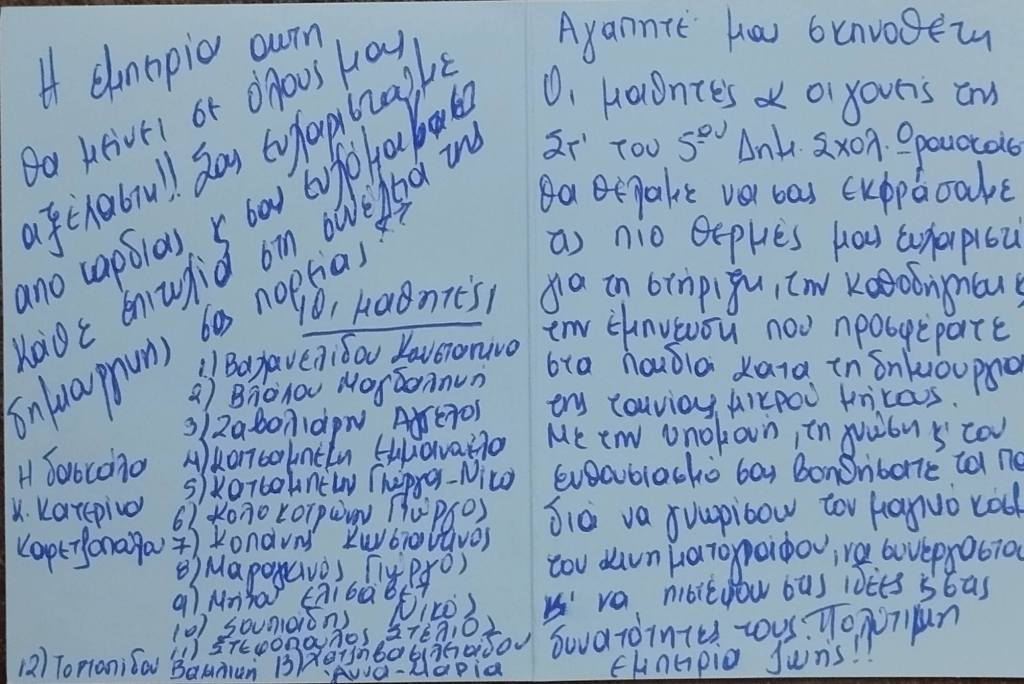 Αγαπητέ μας σκηνοθέτη
Οι μαθητές & οι γονείς της
Στ' του 5ου Δημ. Σχολ. Ορεστιάδας
θα θέλαμε να σας εκφράσαμε
τις πιο θερμές μας ευχαριστί
για τη στήριξη, την καθοδήγηση κ
την έμπνευση που προσφέρατε
στα παιδιά κατά τη δημιουργία
της ταινίας μικρού μήκους.
Με την υπομονή, τη γνώση κ' τον
ενθουσιασμό σας βοηθήσατε τα πα
διά να γνωρίσουν τον μαγικό κόσμ
του κινηματογράφου, να συνεργαστο
κ' να πιστέψουν στις ιδέες κ στις
δυνατότητες τους. Πολύτιμη
εμπειρία ζωής!!
Η εμπειρία αυτή
θα μείνει σε όλους μας
αξέχαστη!! Σας ευχαριστάμε
από καρδιάς κ σου ευχόμαστε
κάθε επιτυχία στη συνέχεια της
δημιουργικής σας πορείας
Οι μαθητές
1) Βαλανελίδου Κωνσταντίνα
2) Βλάχου Μαγδαληνή
3) Ζαβολιάρη Άγγελος
4) Κατσαμπέκη Εμμανουέλα
5) Κατσαμπέκη Γιώργος-Νίκο
6) Κολοκοτρώνη Γιώργος
7) Κοπάνης Κωνσταντίνος
8) Μαραγκινός Γιώργος
9) Μήτα Ελισάβετ
10) Σουπιάδης Νίκος
11) Στεφόπουλος Στέλιος
12) Τοπαπίδου Βασιλική 13) Χατζηβασιλειάδου
Άννα-Μαρία
Η δασκάλα
κ. Κατερίνα
Καρετζοπούλου